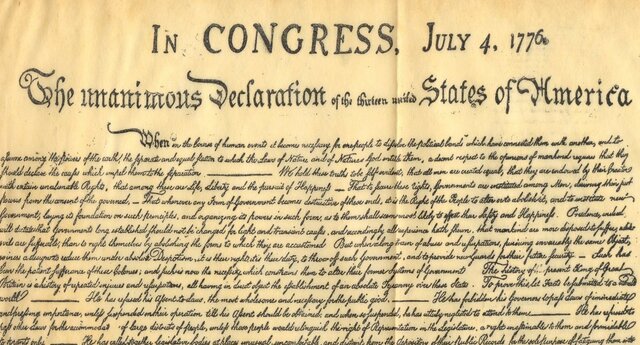 In CONGRESS, July 4, 1776.
The unanimous Declaration of the thirteen united States of America
When in the Course of human events it becomes necessary for one people to dissolve the political bands which have connected them with another, and to
assume among the powers of the earth, the separate and equal station to which the Laws of Nature and of Nature's God entitle them, a decent respect to the opinions of mankind requires that they
should declare the causes which impel them to the separation. — We hold these truths to be self-evident, that all men are created equal, that they are endowed by their Creator
with certain unalienable Rights, that among these are Life, Liberty and the pursuit of Happiness. — That to secure these rights, Governments are instituted among Men, deriving their just
powers from the consent of the governed, — That whenever any Form of Government becomes destructive of these ends, it is the Right of the People to alter or to abolish it, and to institute new
Government, laying its foundation on such principles, and organizing its powers in such form, as to them shall seem most likely to effect their Safety and Happiness. Prudence, indeed,
will dictate that Governments long established should not be changed for light and transient causes; and accordingly all experience hath shewn, that mankind are more disposed to suffer, while
evils are sufferable, than to right themselves by abolishing the forms to which they are accustomed. But when a long train of abuses and usurpations, pursuing invariably the same Object,
evinces a design to reduce them under absolute Despotism, it is their right, it is their duty, to throw off such Government, and to provide new Guards for their future security. — Such has
been the patient sufferance of these Colonies; and such is now the necessity which constrains them to alter their former Systems of Government. The history of the present King of Great
Britain is a history of repeated injuries and usurpations, all having in direct object the establishment of an absolute Tyranny over these States. To prove this, let Facts be submitted to a candid
world. — He has refused his Assent to Laws, the most wholesome and necessary for the public good. — He has forbidden his Governors to pass Laws of immediate
and pressing importance, unless suspended in their operation till his Assent should be obtained; and when so suspended, he has utterly neglected to attend to them. — He has refused to
pass other Laws for the accommodation of large districts of people, unless those people would relinquish the right of Representation in the Legislature, a right inestimable to them and formidable
He has called together legislative bodies at places unusual, uncomfortable, and distant from the depository of their public Records, for the sole purpose of fatiguing them into